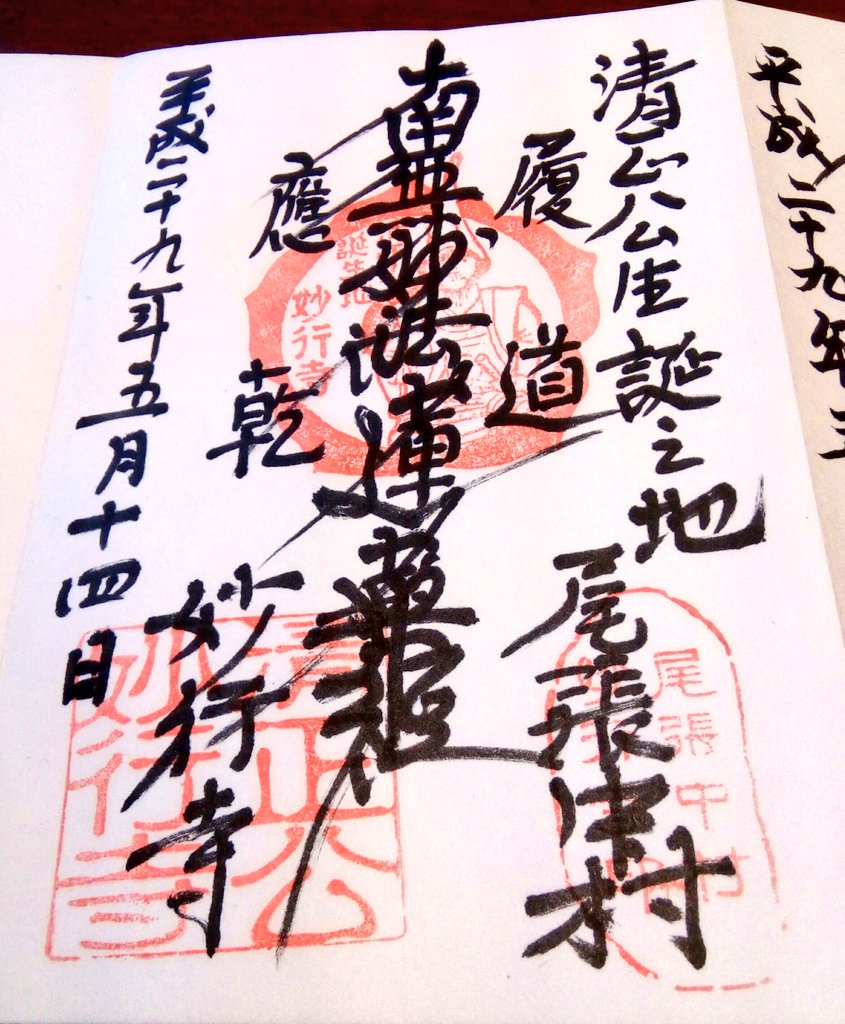 平成二十九年五
清正公生誕之地
尾張中村
履道
南無妙法蓮華経
應乾
妙行寺
平成二十九年五月十四日
誕生地
妙行寺
尾張中村
清正公
妙行寺